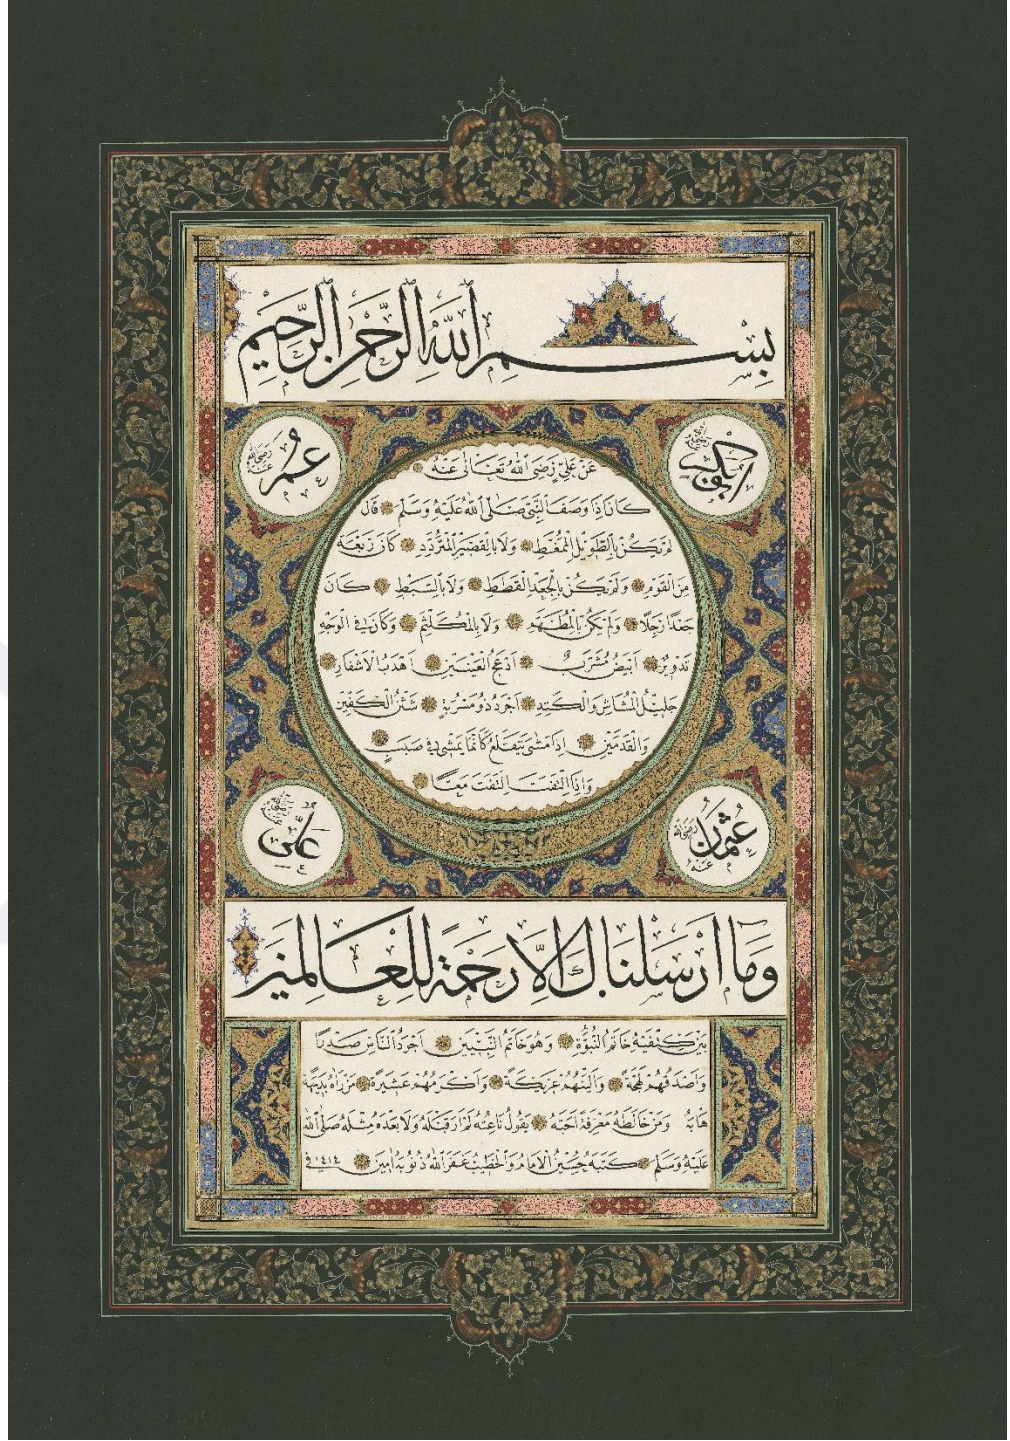 بِسْمِ ٱللّٰهِ ٱلرَّحْمٰنِ ٱلرَّحِيمِ
ابوبكر رضى الله عنه
عُمَر رضى الله عنه
عَنْ عَلِيٍّ رَضِىَ اللّٰهُ تَعَالٰى عَنْهُ
كَانَ اِذَا وَصَفَ النَّبِىَّ صَلَّى اللّٰهُ عَلَيْهِ وَسَلَّمَ قَالَ
لَمْ يَكُنْ بِالطَّوِيلِ الْمُمَّغِطِ وَلَا بِالْقَصِيرِ الْمُتَرَدِّدِ كَانَ رَبْعَةً
مِنَ الْقَوْمِ وَلَمْ يَكُنْ بِالْجَعْدِ الْقَطَطِ وَلَا بِالسَّبِطِ كَانَ
جَعْدًا رَجِلًا وَلَمْ يَكُنْ بِالْمُطَهَّمِ وَلَا بِالْمُكَلْثَمِ وَكَانَ فِى الْوَجْهِ
تَدْوِيرٌ اَبْيَضُ مُشْرَبٌ اَدْعَجُ الْعَيْنَيْنِ اَهْدَبُ الْاَشْفَارِ
جَلِيلُ الْمُشَاشِ وَالْكَتَدِ اَجْرَدُ ذُو مَسْرُبَةٍ شَثْنُ الْكَفَّيْنِ
وَالْقَدَمَيْنِ اِذَا مَشٰى يَتَقَلَّعُ كَاَنَّمَا يَمْشِى فِى صَبَبٍ
وَاِذَا الْتَفَتَ الْتَفَتَ مَعًا
عُثْمَان رضى الله عنه
عَلِى رضى الله عنه
وَمَا اَرْسَلْنَاكَ اِلَّا رَحْمَةً لِلْعَالَمِينَ
بَيْنَ كَتِفَيْهِ خَاتَمُ النُّبُوَّةِ وَهُوَ خَاتَمُ النَّبِيِّينَ اَجْوَدُ النَّاسِ صَدْرًا
وَاَصْدَقُهُمْ لَهْجَةً وَاَلْيَنُهُمْ عَرِيكَةً وَاَكْرَمُهُمْ عَشِيرَةً مَنْ رَاٰهُ بَدِيهَةً
هَابَهُ وَمَنْ خَالَطَهُ مَعْرِفَةً اَحَبَّهُ يَقُولُ نَاعِتُهُ لَمْ اَرَ قَبْلَهُ وَلَا بَعْدَهُ مِثْلَهُ صَلَّى اللّٰهُ
عَلَيْهِ وَسَلَّمَ كَتَبَهُ حُسَيْنُ الْاِمَامُ وَالْخَطِيبُ غَفَرَ اللّٰهُ ذُنُوبَهُ اٰمِينَ فى ١٤١٤